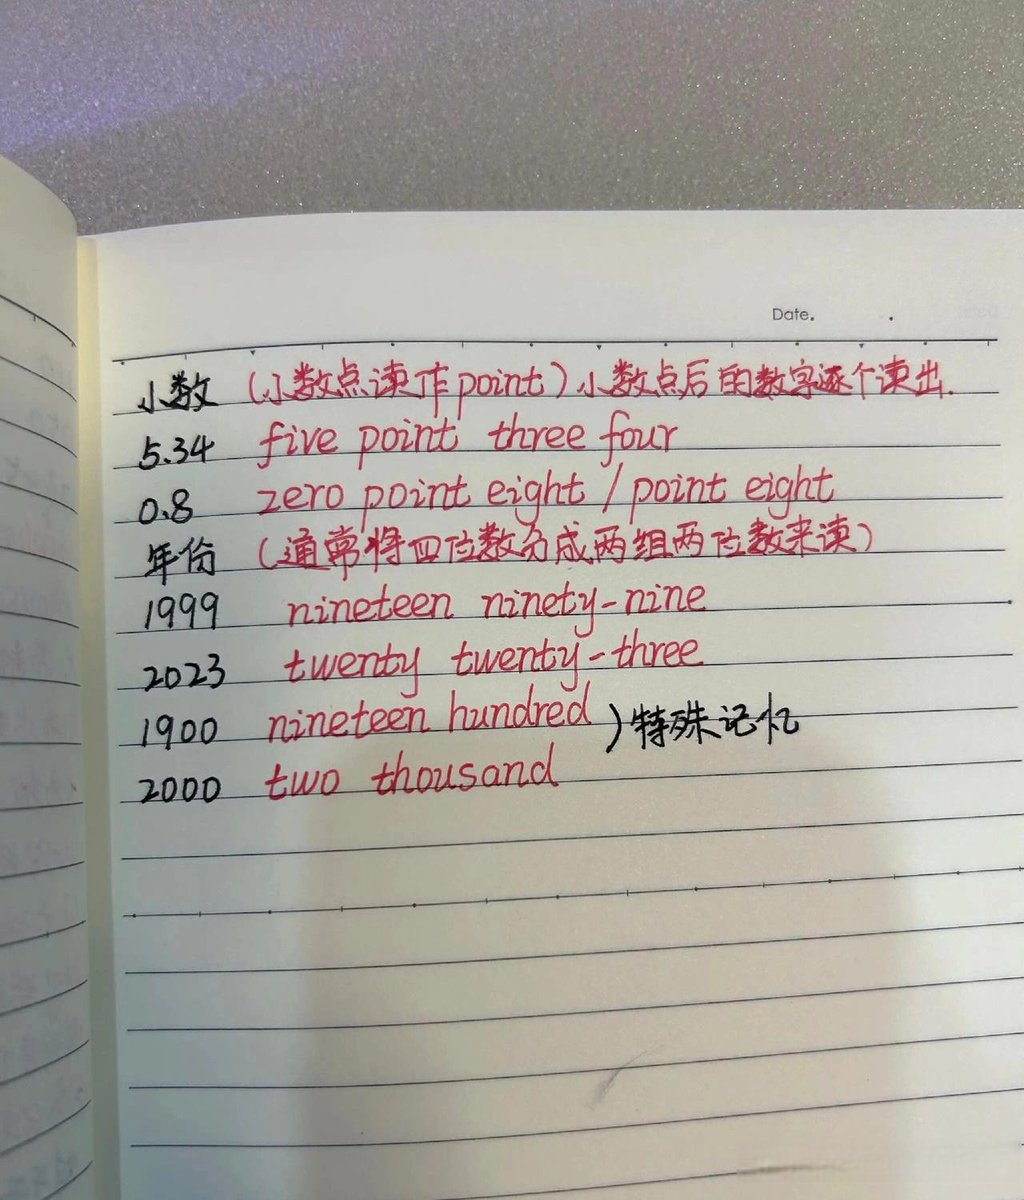 Date.
小数 (小数点读作point) 小数点后的数字逐个读出.
5.34 five point three four
0.8 zero point eight / point eight
年份 (通常将四位数分成两组两位数来读)
1999 nineteen ninety-nine
2023 twenty twenty-three
1900 nineteen hundred )特殊记忆
2000 two thousand